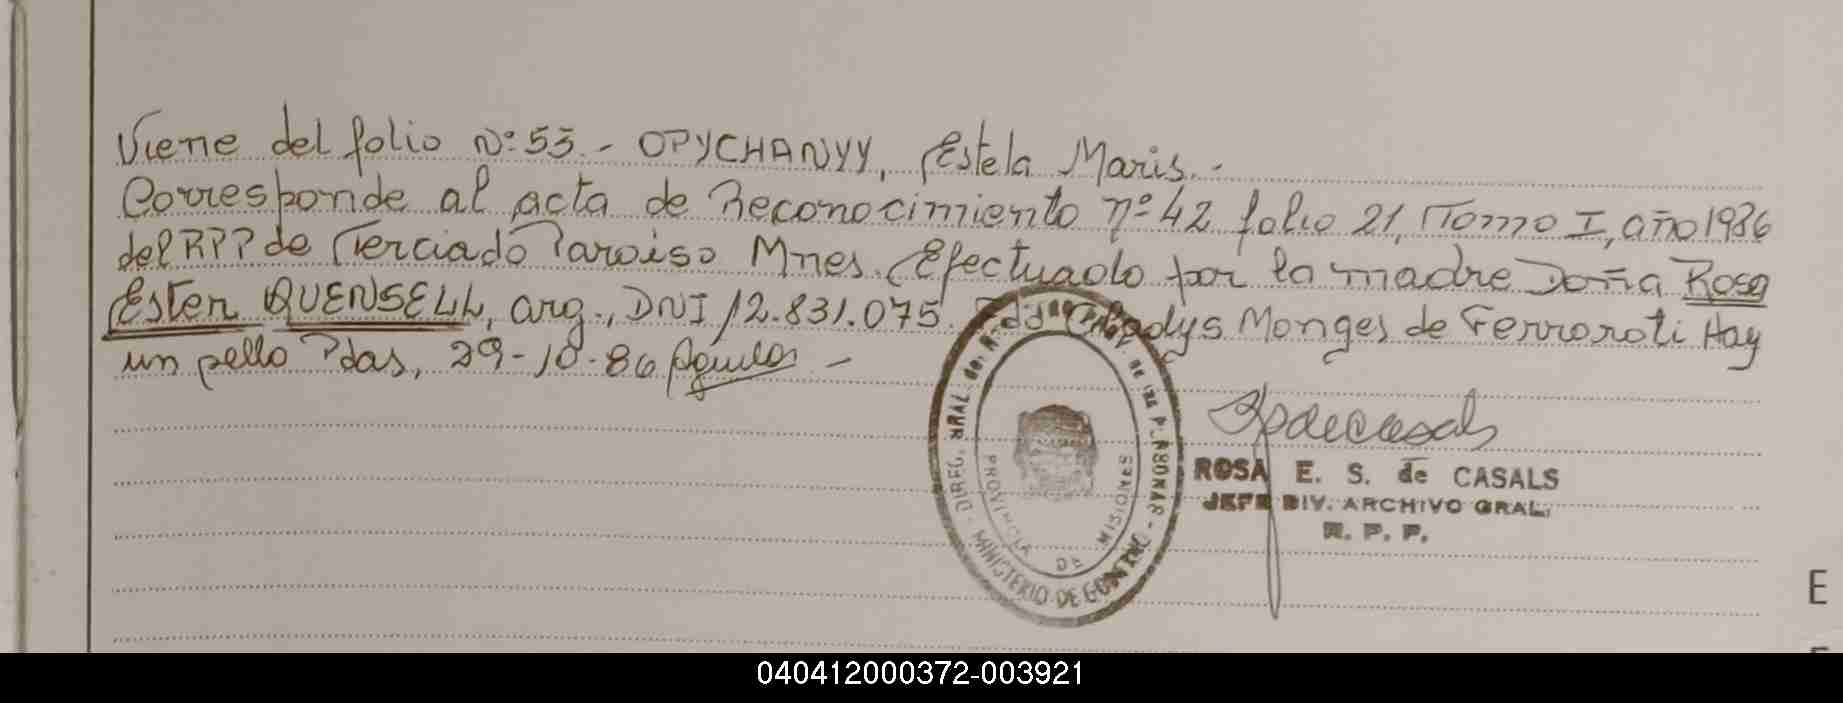 Viene del folio Nº 53.- OPYCHANYY, Estela Maris.-
Corresponde al acta de Reconocimiento nº 42 folio 21, Tomo I, año 1986
del RPP de Terciado Paraiso Mnes. Efectuado por la madre Doña Rosa
Ester QUENSELL, arg., DNI 12.831.075. Fdo Gladys Monges de Ferraroti Hay
un sello Pdas, 29-10-86
DIREC. GRAL. DE LAS PERSONAS
PROVINCIA DE MISIONES
MINISTERIO DE GOBIERNO
ROSA E. S. de CASALS
JEFE DIV. ARCHIVO GRAL.
R. P. P.
E
040412000372-003921